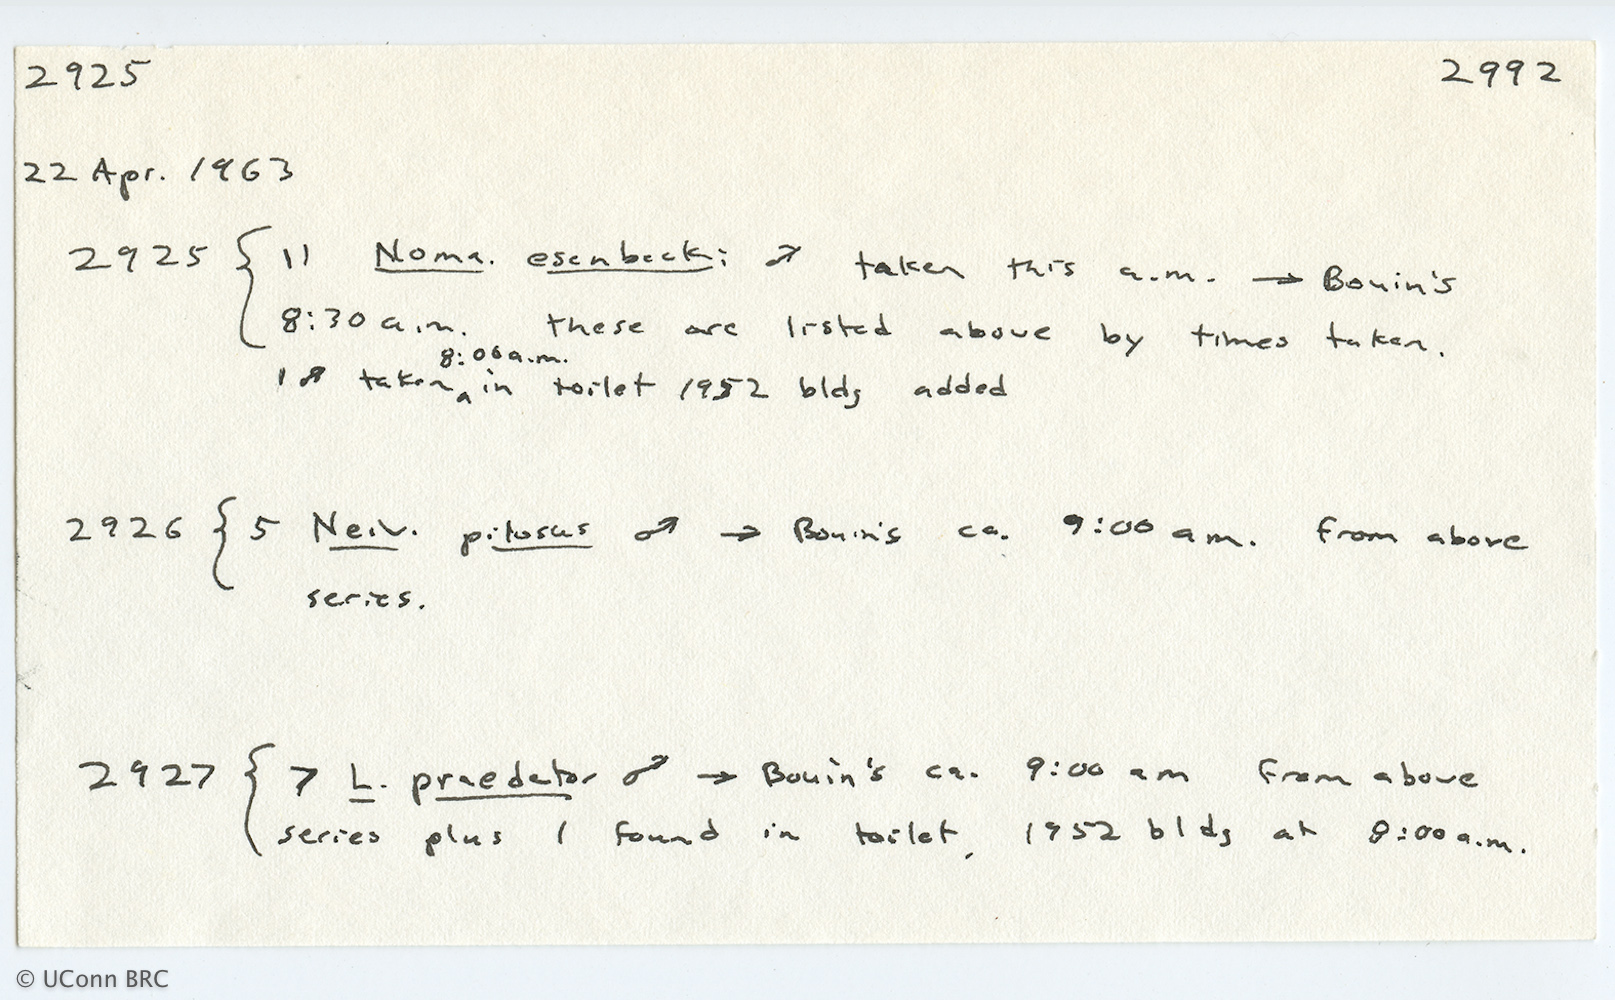 2925 2992
22 Apr. 1963
2925 { 11 Noma. esenbecki ♂ taken this a.m. → Bouin's
8:30 a.m. these are listed above by times taken.
8:00 a.m.
1 ♂ taken ^ in toilet 1952 bldg added
2926 { 5 Neiv. pilosus ♂ → Bouin's ca. 9:00 am. From above
series.
2927 { 7 L. praedator ♂ → Bouin's ca. 9:00 am From above
series plus 1 found in toilet, 1952 bldg at 8:00 a.m.
© UConn BRC